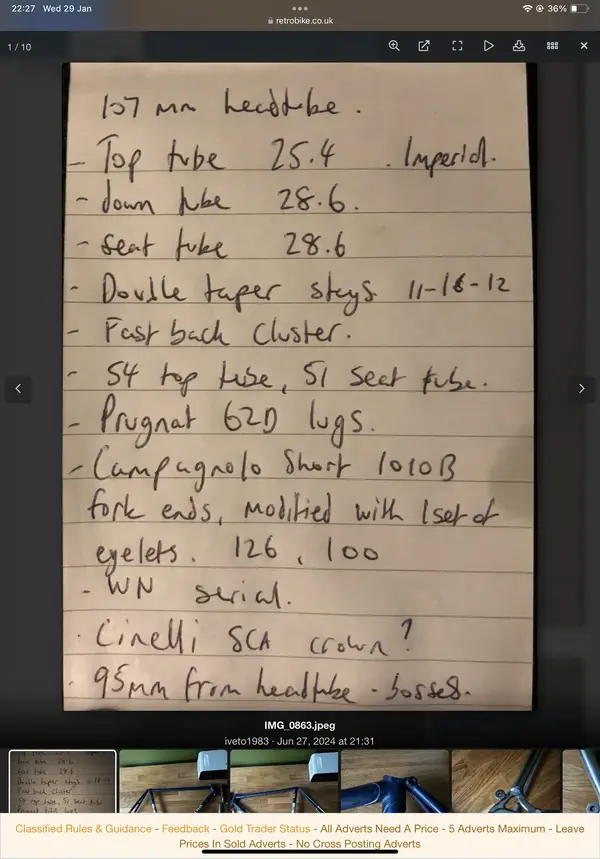 22:27 Wed 29 Jan
36%
retrobike.co.uk
1 / 10
107 mm headtube.
- Top tube 25.4 . Imperial.
- down tube 28.6.
- seat tube 28.6
- Double taper stays 11-16-12
- Fast back cluster.
- 54 top tube, 51 seat tube.
- Prugnat 62D lugs.
- Campagnolo short 1010B
fork ends, modified with 1set of
eyelets. 126, 100
- WN serial.
. Cinelli SCA crown?
. 95mm from headtube - bosses.
IMG_0863.jpeg
iveto1983 · Jun 27, 2024 at 21:31
Classified Rules & Guidance - Feedback - Gold Trader Status - All Adverts Need A Price - 5 Adverts Maximum - Leave
Prices In Sold Adverts - No Cross Posting Adverts